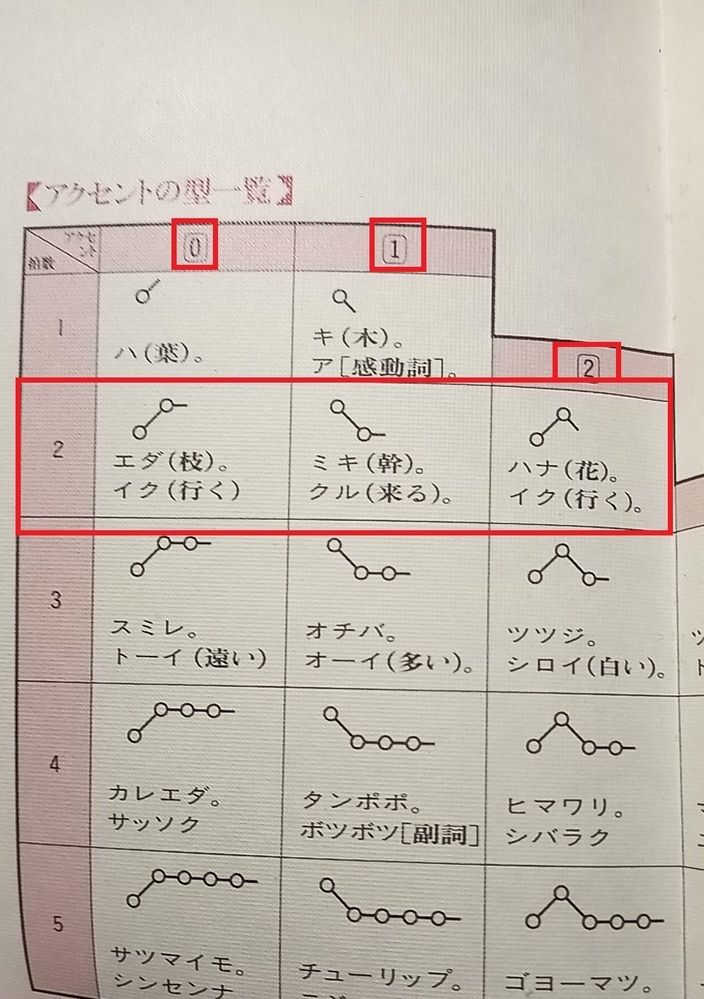 【アクセントの型一覧】
アクセント
拍数
0
1
1
ハ(葉)。
キ(木)。
ア[感動詞]。
2
2
エダ(枝)。
イク(行く)
ミキ(幹)。
クル(来る)。
ハナ(花)。
イク(行く)。
3
スミレ。
トーイ(遠い)
オチバ。
オーイ(多い)。
ツツジ。
シロイ(白い)。
4
カレエダ。
サッソク
タンポポ。
ボツボツ[副詞]
ヒマワリ。
シバラク
5
サツマイモ。
シンセンナ
チューリップ。
ゴヨーマツ。